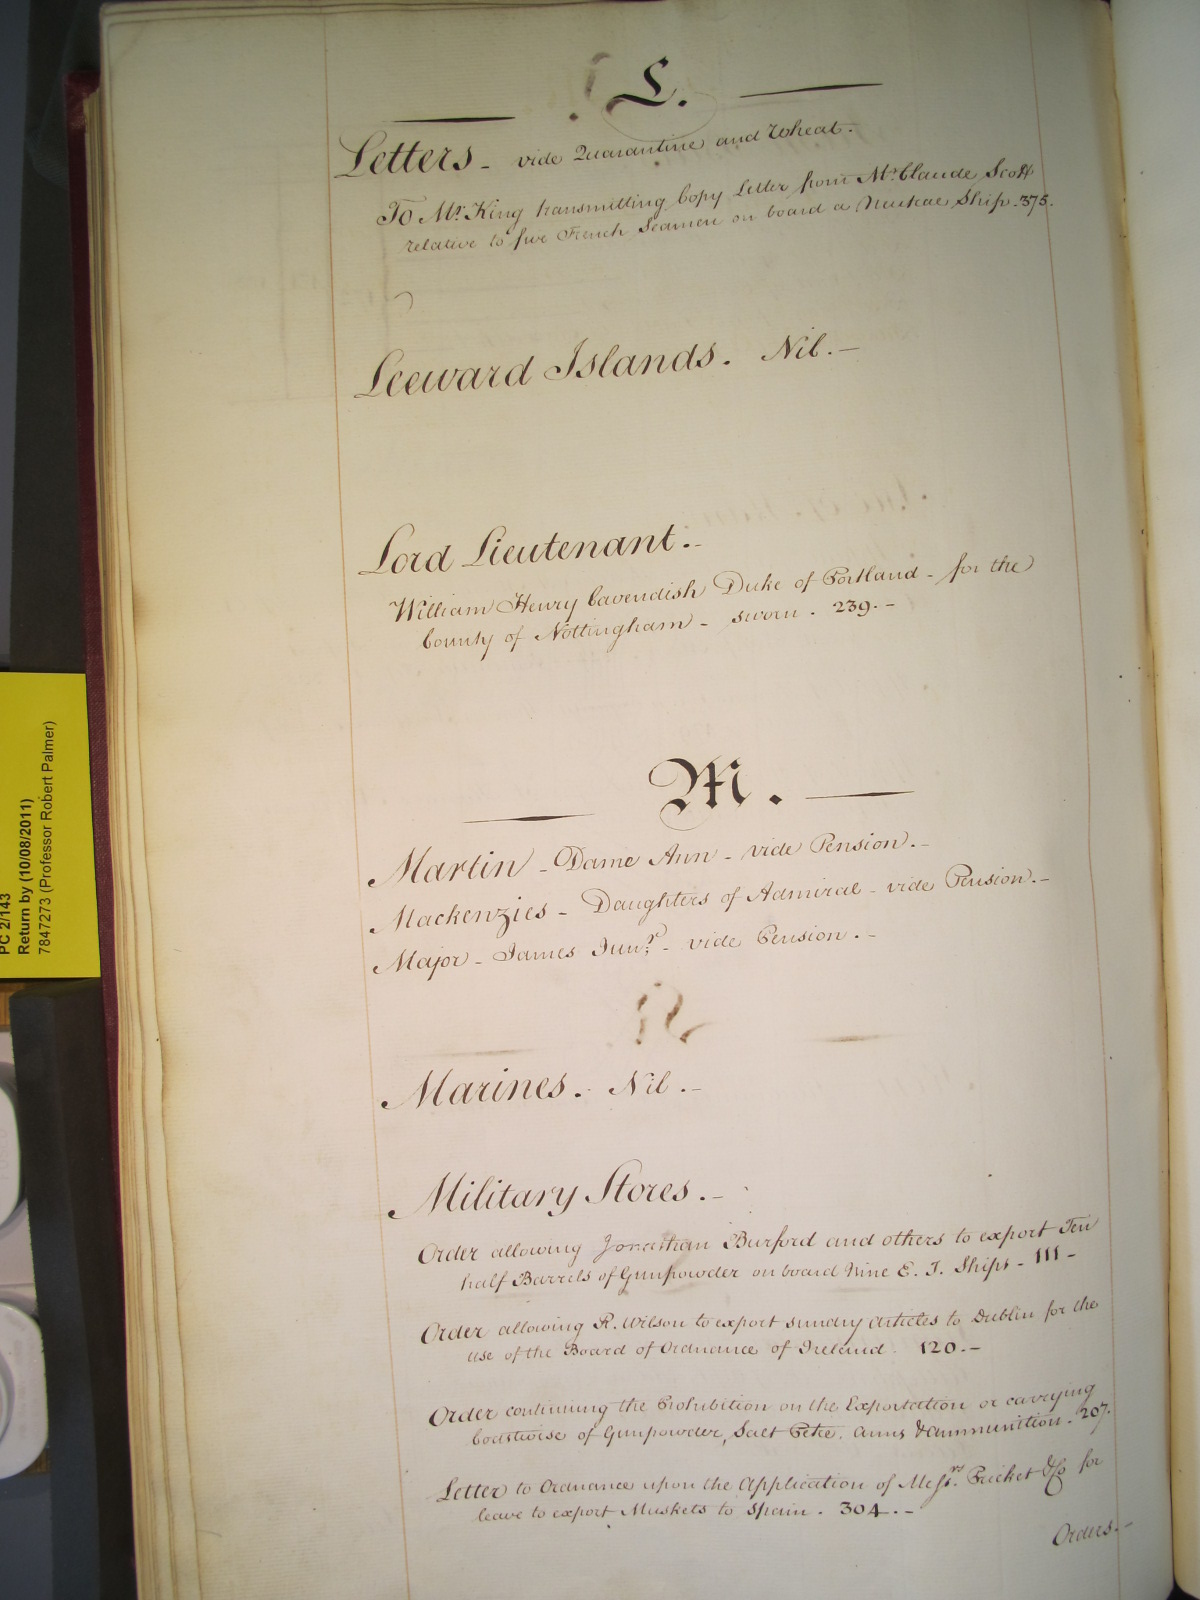 L.
Letters - vide Quarantine and Wheat.
To Mr. King transmitting Copy Letter from Mr. Claude Scott
relative to five French Seamen on board a Neutral Ship. 375.
Leeward Islands. Nil.-
Lord Lieutenant.-
William Henry Cavendish Duke of Portland - for the
County of Nottingham - sworn. 239.-
M.
Martin - Dame Ann - vide Pension.-
Mackenzies - Daughters of Admiral - vide Pension.-
Major - James Junr. - vide Pension.-
Marines. Nil.-
Military Stores.-
Order allowing Jonathan Burford and others to export Ten
half Barrels of Gunpowder on board Nine E. I. Ships - 111 -
Order allowing R. Wilson to export sundry Articles to Dublin for the
use of the Board of Ordnance of Ireland. 120.-
Order continuing the Prohibition on the Exportation or carrying
Coastwise of Gunpowder, Salt Petre, Arms & Ammunition. 207.
Letter to Ordnance upon the Application of Messrs. Pricket & Co for
leave to export Muskets to Spain. 304.-
Orders.-
PC 2/143
Return by (10/08/2011)
7847273 (Professor Robert Palmer)